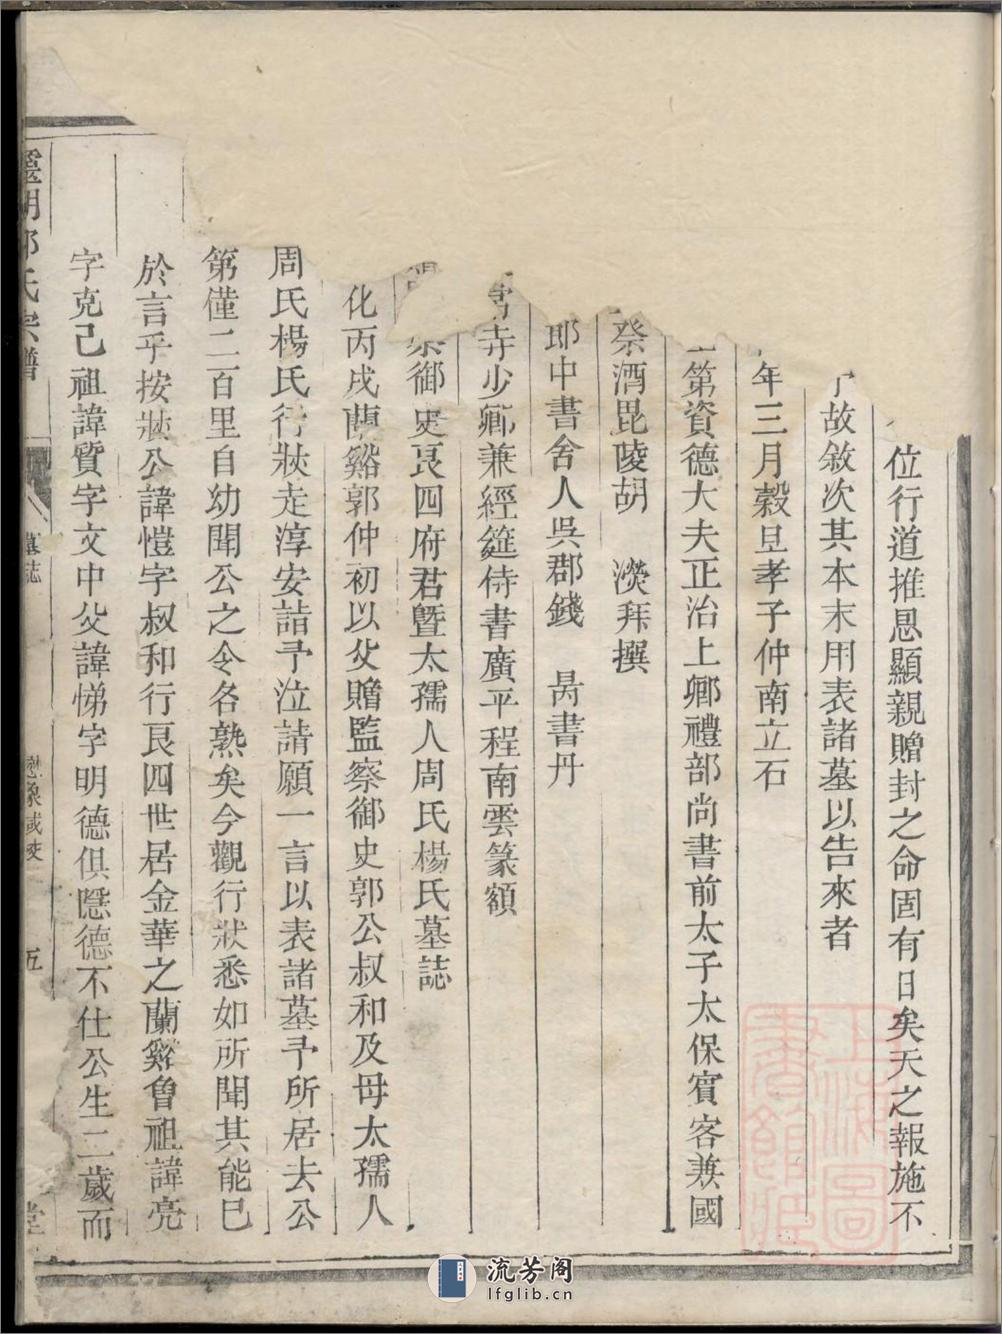 位行道推恩顯親贈封之命固有日矣天之報施不
故敘次其本末用表諸墓以告來者
年三月榖旦孝子仲南立石
第資德大夫正治上卿禮部尚書前太子太保賓客兼國
祭酒毘陵胡　濙拜撰
中書舍人吳郡錢　昺書丹
寺少卿兼經筵侍書廣平程南雲篆額
御史良四府君暨太孺人周氏楊氏墓誌
化丙戌蘭谿郭仲初以父贈監察御史郭公叔和及母太孺人
周氏楊氏行狀走淳安詣予泣請願一言以表諸墓予所居去公
第僅二百里自幼聞公之令名熟矣今觀行狀悉如所聞其能已
於言乎按狀公諱愷字叔和行良四世居金華之蘭谿魯祖諱亮
字克己祖諱質字文中父諱悌字明德俱隱德不仕公生二歲而
氏宗譜
墓誌
五
堂
上海圖書館藏
流芳阁
lfglib.cn